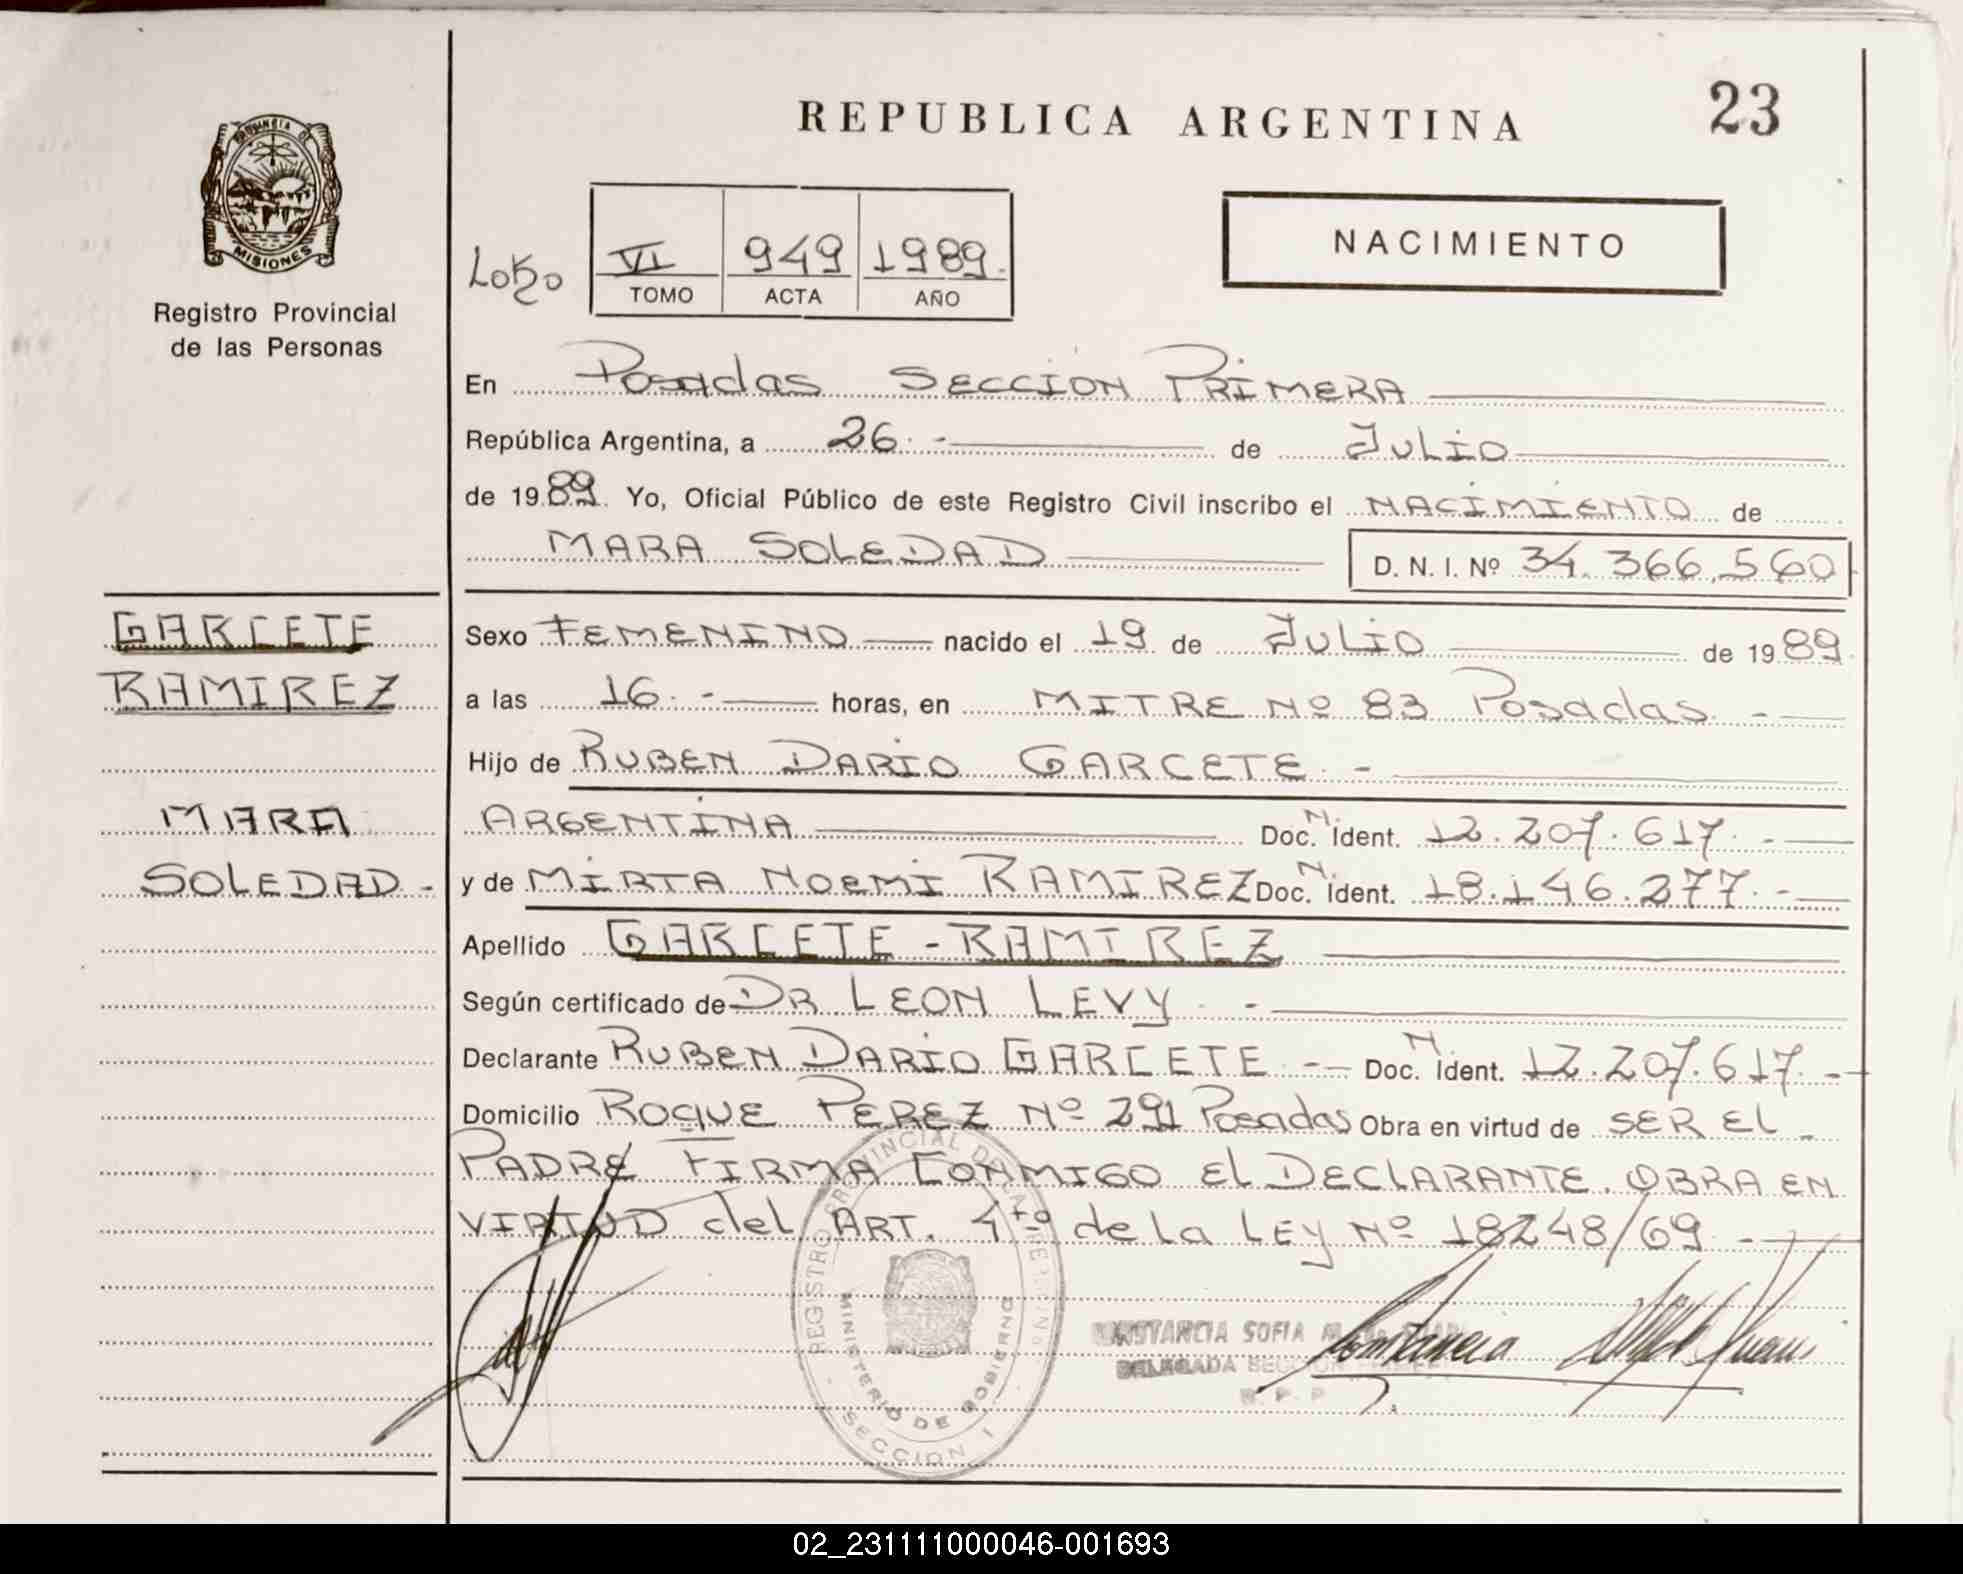 REPUBLICA ARGENTINA
23
PROVINCIA DE
MISIONES
Registro Provincial
de las Personas
VI 949 1989.
TOMO ACTA AÑO
NACIMIENTO
En Posadas SECCION PRIMERA
República Argentina, a 26.- de JULIO
de 1989. Yo, Oficial Público de este Registro Civil inscribo el NACIMIENTO de
MARA SOLEDAD D. N. I. Nº 34.366.560
GARCETE
RAMIREZ
MARA
SOLEDAD.-
Sexo FEMENINO nacido el 19 de JULIO de 1989.
a las 16.- horas, en MITRE Nº 83 Posadas.-
Hijo de RUBEN DARIO GARCETE.-
ARGENTINA Doc. N. Ident. 12.207.617.-
y de MIRTA NOEMI RAMIREZ Doc. N. Ident. 18.146.277.-
Apellido GARCETE-RAMIREZ
Según certificado de DR. LEON LEVY.-
Declarante RUBEN DARIO GARCETE.-- Doc. N. Ident. 12.207.617.-
Domicilio ROQUE PEREZ Nº 291 Posadas Obra en virtud de SER EL
PADRE FIRMA CONMIGO EL DECLARANTE. OBRA EN
VIRTUD del ART. 4to de la LEY Nº 18248/69.-
REGISTRO PROVINCIAL DE LAS PERSONAS
MINISTERIO DE GOBIERNO
SECCION I
CONSTANCIA SOFIA
DELEGADA SECCION
R. P. P.
Constancia
02_231111000046-001693